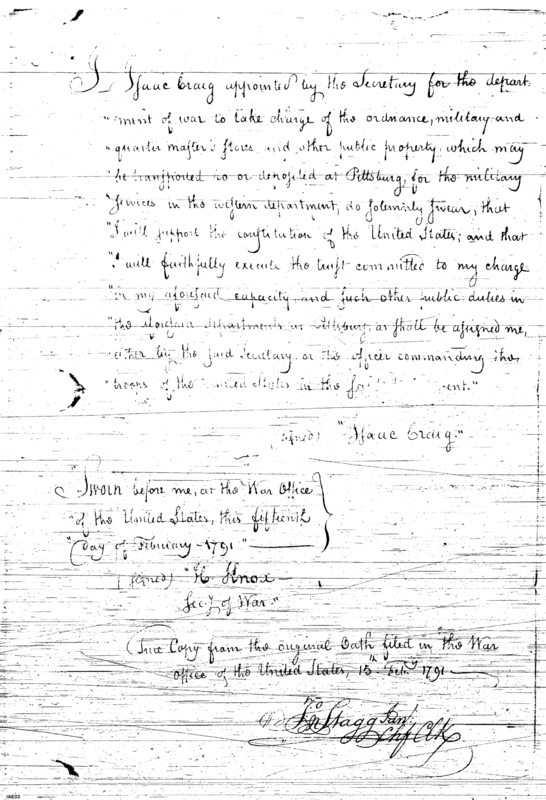 I Isaac Craig appointed by the Secretary for the depart-
"ment of war to take charge of the ordnance, military and
"quarter master's stores and other public property, which may
"be transported to or deposited at Pittsburg, for the military
"services in the western department, do solemnly swear, that
"I will support the constitution of the United States; and that
"I will faithfully execute the trust committed to my charge
"in my aforesaid capacity and such other public duties in
"the aforesaid department at Pittsburg, as shall be assigned me,
either by the said Secretary or the officer commanding the
"troops of the United States in the
(signed) "Isaac Craig."
Sworn before me, at the War Office
"of the United States, this fifteenth
"day of February - 1791."
(signed) "H Knox
Secy. of War."
True Copy from the original Oath filed in the War
office of the United States, 15th Feby 1791
Jno Stagg Junr
Chf Clk
IAE03